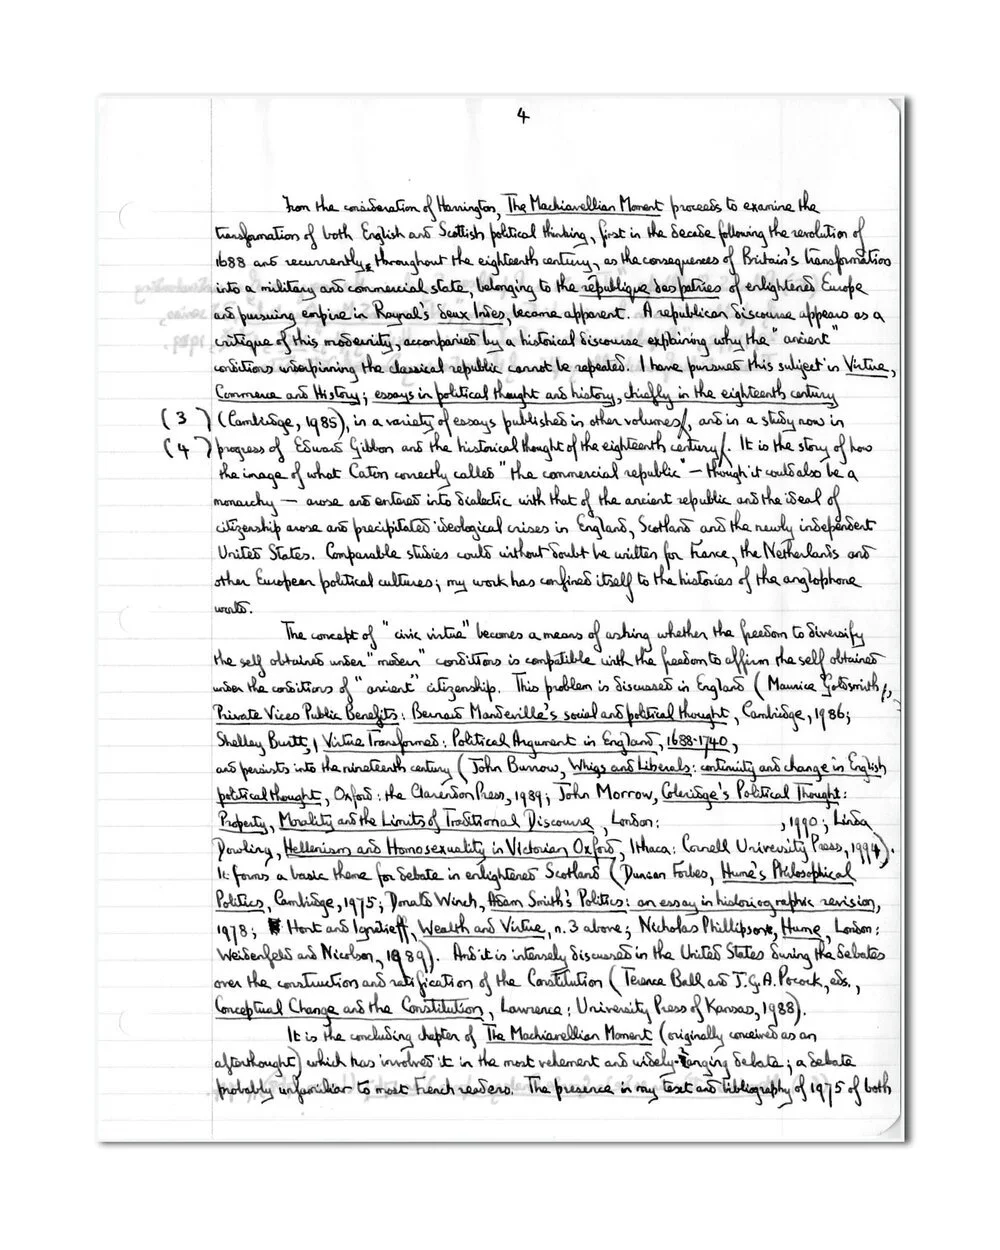 4
From the consideration of Harrington, The Machiavellian Moment proceeds to examine the
transformation of both English and Scottish political thinking, first in the decade following the revolution of
1688 and recurrently throughout the eighteenth century, as the consequences of Britain's transformation
into a military and commercial state, belonging to the république des patries of enlightened Europe
and pursuing empire in Raynal's deux Indes, became apparent. A republican discourse appears as a
critique of this modernity, accompanied by a historical discourse explaining why the "ancient"
conditions underpinning the classical republic cannot be repeated. I have pursued this subject in Virtue,
Commerce and History; essays in political thought and history, chiefly in the eighteenth century
(3) (Cambridge, 1985), in a variety of essays published in other volumes/, and in a study now in
(4) progress of Edward Gibbon and the historical thought of the eighteenth century/. It is the story of how
the image of what Caton correctly called "the commercial republic" – though it could also be a
monarchy – arose and entered into dialectic with that of the ancient republic and the ideal of
citizenship arose and precipitated ideological crises in England, Scotland and the newly independent
United States. Comparable studies could without doubt be written for France, the Netherlands and
other European political cultures; my work has confined itself to the histories of the anglophone
world.
The concept of "civic virtue" becomes a means of asking whether the freedom to diversify
the self obtained under "modern" conditions is compatible with the freedom to affirm the self obtained
under the conditions of "ancient" citizenship. This problem is discussed in England (Maurice Goldsmith,
Private Vices Public Benefits: Bernard Mandeville's social and political thought, Cambridge, 1986;
Shelley Burtt, Virtue Transformed: Political Argument in England, 1688-1740,
and persists into the nineteenth century (John Burrow, Whigs and Liberals: continuity and change in English
political thought, Oxford: the Clarendon Press, 1989; John Morrow, Coleridge's Political Thought:
Property, Morality and the Limits of Traditional Discourse, London: , 1990; Linda
Dowling, Hellenism and Homosexuality in Victorian Oxford, Ithaca: Cornell University Press, 1994).
It forms a basic theme for debate in enlightened Scotland (Duncan Forbes, Hume's Philosophical
Politics, Cambridge, 1975; Donald Winch, Adam Smith's Politics: an essay in historiographic revision,
1978; Hont and Ignatieff, Wealth and Virtue, n. 3 above; Nicholas Phillipson, Hume, London:
Weidenfeld and Nicolson, 1989). And it is intensely discussed in the United States during the debates
over the construction and ratification of the Constitution (Terence Ball and J.G.A. Pocock, eds.,
Conceptual Change and the Constitution, Lawrence: University Press of Kansas, 1988).
It is the concluding chapter of The Machiavellian Moment (originally conceived as an
afterthought) which has involved it in the most vehement and widely-ranging debate; a debate
probably unfamiliar to most French readers. The presence in my text and bibliography of 1975 of both